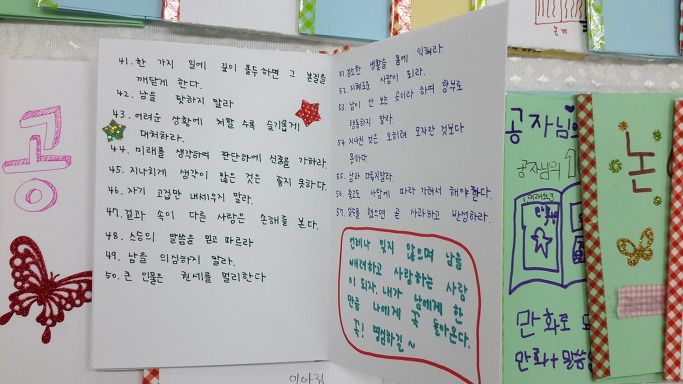 공
41. 한 가지 일에 깊이 몰두하면 그 본질을
깨닫게 한다.
42. 남을 탓하지 말라
43. 어려운 상황에 처할 수록 슬기롭게
대처하라.
44. 미래를 생각하여 판단하며 신중을 가하라.
45. 지나치게 생각이 많은 것은 좋지 못하다.
46. 자기 고집만 내세우지 말라.
47. 겉과 속이 다를 사람은 손해를 본다.
48. 스승의 말씀을 믿고 따르라
49. 남을 의심하지 말라.
50. 큰 인물은 권세를 멀리한다
51. 검소한 생활을 몸에 익혀라
52. 지혜로운 사람이 되라.
53. 남이 안 보는 곳이라 하여 함부로
행동하지 말라.
54. 지나친 것은 오히려 모자란 것보다
못하다
55. 남과 다투지말라.
56. 충고도 사람에 따라 가려서 해야 한다.
57. 잘못을 했으면 곧 사과하고 반성하라.
언제나 잊지 않으며 남을
배려하고 사랑하는 사람
이 되자. 내가 남에게 한
만큼 나에게 꼭 돌아온다.
꼭! 명심하길~
공자님의
공자님의
논
만화로
만화+말씀
이아림